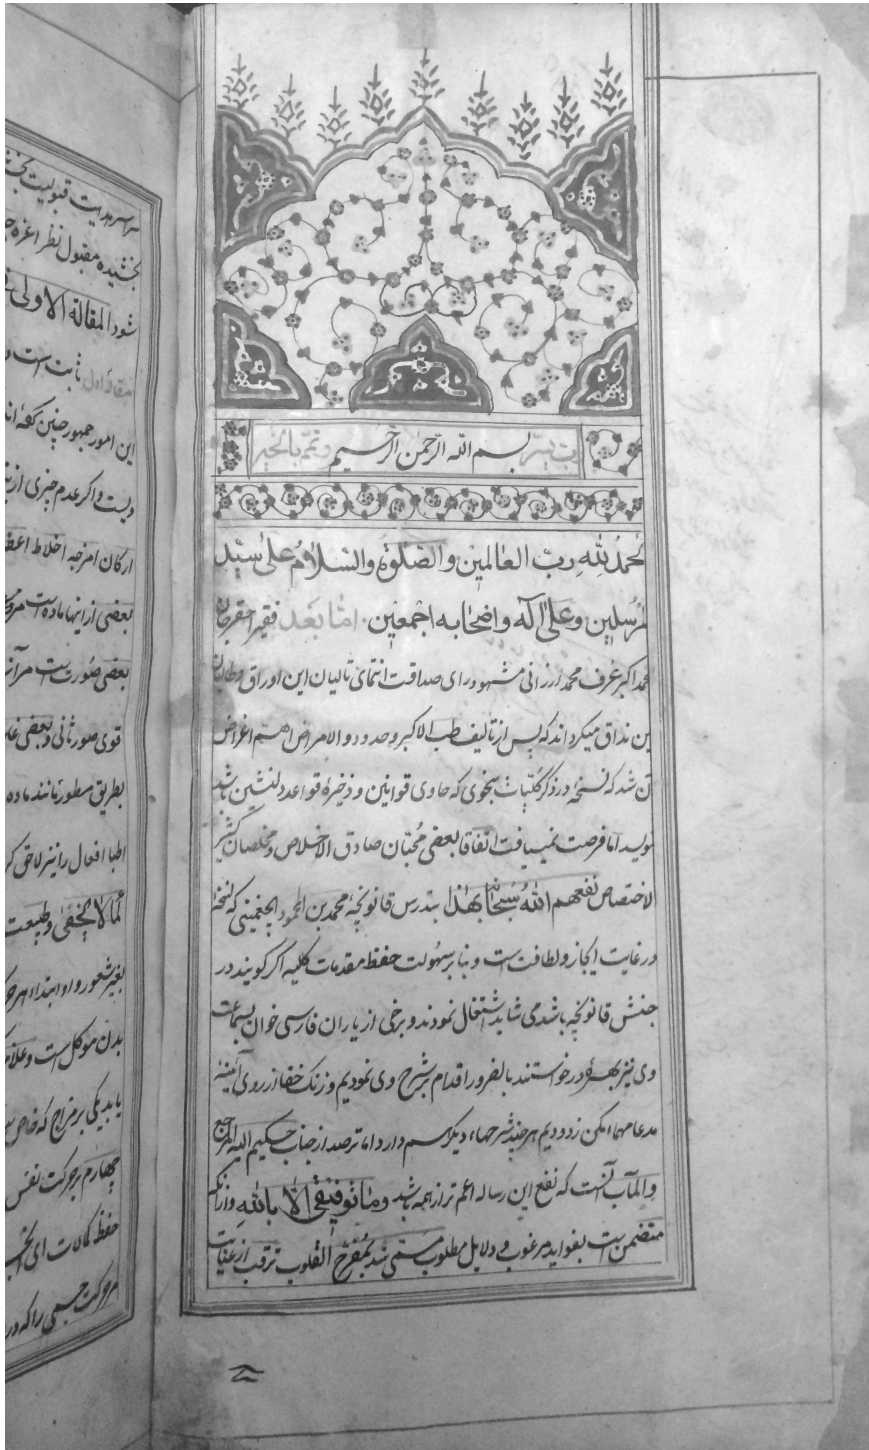 رب یسّر بسم الله الرّحمن الرّحیم وتمّم بالخیر
الحمدُ للهِ ربّ العالمین والصلوة والسّلامُ علی سیّد
المرسلین وعلی اله واصحابه اجمعین. امّا بعد فقیر احقر جان
محمد اکبر عرف محمد ارزانی مشهود رای صداقت انتمای تالیان این اوراق وطالبان
این نداق میکرداند که پس از تالیف طب الاکبر وحدود والامراض اهم اغراض
آن شد که نسخهٔ در ذکر کلیّات بنحوی که حاوی قوانین و ذخیرهٔ قواعد دلنشین باشد
اما فرصت نمییافت اتفاقا بعضی مُحبّان صادق الاخلاص ومخلصان کثیر
الاختصاص نفعهم اللهُ سُبحانه بهٰذا بتدرس قانونچهٔ محمد بن المحمود الچغمینی که نسخهٔ
در غایت ایجاز ولطافت است وبنابر سهولت حفظ مقدمات کلیه اگر گویند در
جنس قانونچه باشد می شاید اشتغال نمودند و برخی از یاران فارسی خوان بسماعت
وی نیز بهرهٔ درخواستند بالضرور اقدام بر شرح وی نمودیم وزنک خفا از روی آئینهٔ
مدعا مهما امکن زدودیم هرچند شرحهاء دیگر هم دارد اما ترصد از جناب حکیم الیه المرجع
والمآب آنست که نفع این رساله اعم تر از همه باشد وما توفیقی الّا بالله وازانکه
متضمن است بفواید مرغوب و دلایل مطلوب مسمّی شد بمُفرّح القلوب ترقب از عنایات
سراسر هدایت قبولیت
بخشیده مقبول نظر اعزه
شود المقالة الاولی
ثابت است
این امور جمهور چنین گفته اند
ونیست واگر عدم چیزی ازین
ارکان امزجه اخلاط اعضا
بعضی از اینها ماده است
بعضی صورت است مرآنرا
قوی صورثانی وبعضی
بطریق مسطور مانند ماده
اطبا افعال را نیز لاحق
کما لا یخفی وطبیعت
بغیر شعور و او ابتداء هر
بدن موکل است
یا بدیکی بر مزاج که خاص
چهارم بر حرکت نفس
حفظ کمالات ای
حرکت جسمی را که در